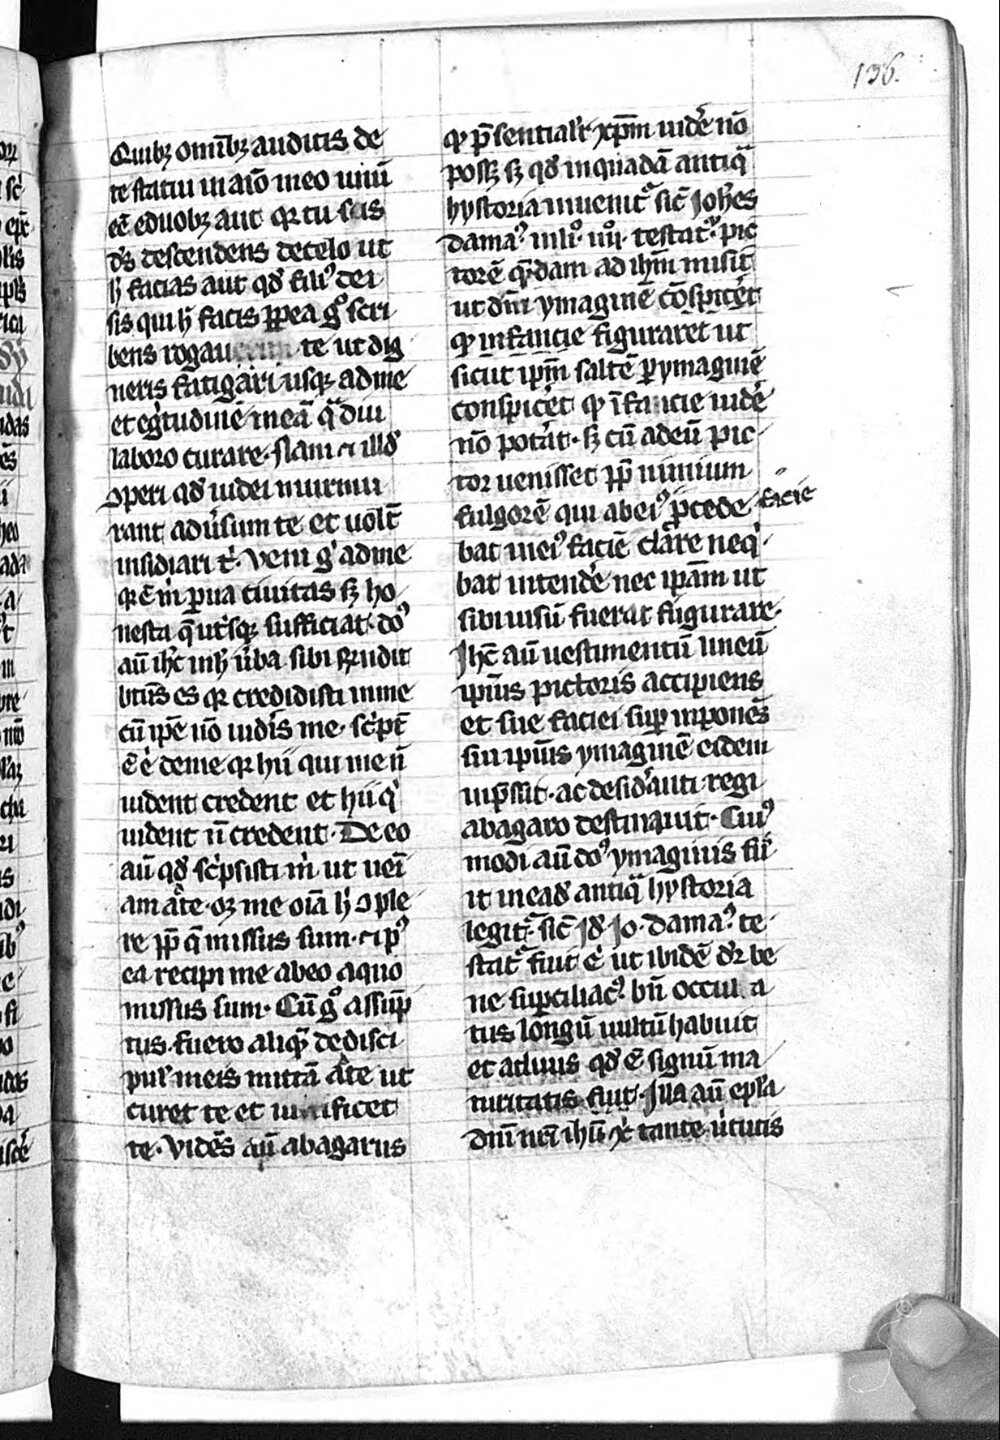 136.
Quibꝫ omībꝫ auditis de
te statui in aīo meo unū
eē e duobꝫ aut qr tu scis
dˢ descendens de celo ut
h̄ facias aut qđ filiꝰ dei
sis qui h̄ facis ꝓpea gͦ scri
bens rogau te ut dig
neris fatigari usqꝫ ad me
et egͥtudinē meā qͣ diu
laboro curare. Nam ⁊ illđ
ꝯperi qđ iudei murmu
rant adūsum te et uolt̄
insidiari tͥ. Veni gͦ ad me
qr ē m̄ ꝑua ciuitas sꝫ ho
nesta q̄ utͥsqꝫ sufficiat. doꝰ
aū ih̄c in h̄ ūba sibi rn̄dit
bt̄us es qr credidisti in me
cū ip̄e nō uidīs me. sc̄pt̄
ē .ē. de me qr hii qui me n̄
uident credent et hii qͥ
uident n̄ credent. De eo
aū qđ sc̄psisti m̄ ut uēi
am ad te. oꝫ me oīa h̄ ꝯple
re ꝓp̄ q̄ missus sum. ⁊ ipꝰ
ea recipi me ab eo a quo
missus sum. Cū gͦ assūp
tus fuero aliqͦ de disci
pul̄ meis mittā ad te ut
curet te et uiuificet
te. Vidēs aū abagarus
qͦ p̄sentialr̄ xp̄m uidēr nō
possꝫ sꝫ qđ in quadā antiqͣ
hystoria inuenitͬ sic̄ Joh̄es
damaꝰ in liͦ. iiiiͦ. testatͬ. pic
torē qͣdam ad ih̄m misit
ut dn̄i ymaginē ꝯspicēt
qͦ in facie figuraret ut
sicut ip̄m saltē ꝑ ymaginē
conspicēt qͦ ī facie uidēr
nō potāt. sꝫ cū ad eū pic
tor uenisset ꝓp̄ nimium
fulgorē qui ab eiꝰ ꝓcede facie
bat in eiꝰ faciē clare neqͥ
bat intendēr nec ip̄am ut
sibi iusū fuerat figurare.
Ih̄c aū uestimentū lineū
ipius pictoris accipiens
et sue faciei suꝑ inponēs
sui ipius ymaginē eidem
inp̄ssit. ac desidāuti regi
abagaro destinauit. Cuiꝰ
modi aū doꝰ ymaginis fūr
it in eađ antiqͣ hystoria
legitͬ. sic̄ iđ Jo. damaꝰ te
statͬ. fuit .ē. ut ibidē dr̄ be
ne suꝑciliatꝰ bn̄ ocula
tus longū uultū habuit
et acliuis qđ ē signū ma
turitatis fuit. Illa aū epl̄a
dn̄i nr̄i ih̄u xͥ tante ūtutis